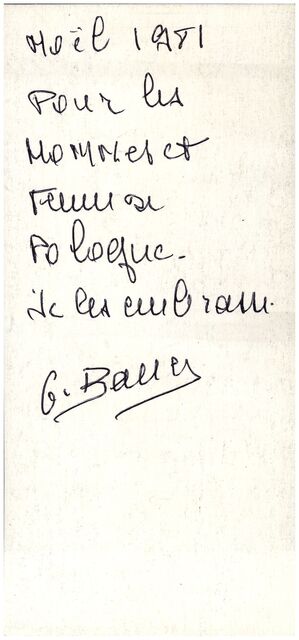 Noël 1981
Pour les
Hommes et
Femmes de
Pologne.
Je les embrasse.
G.